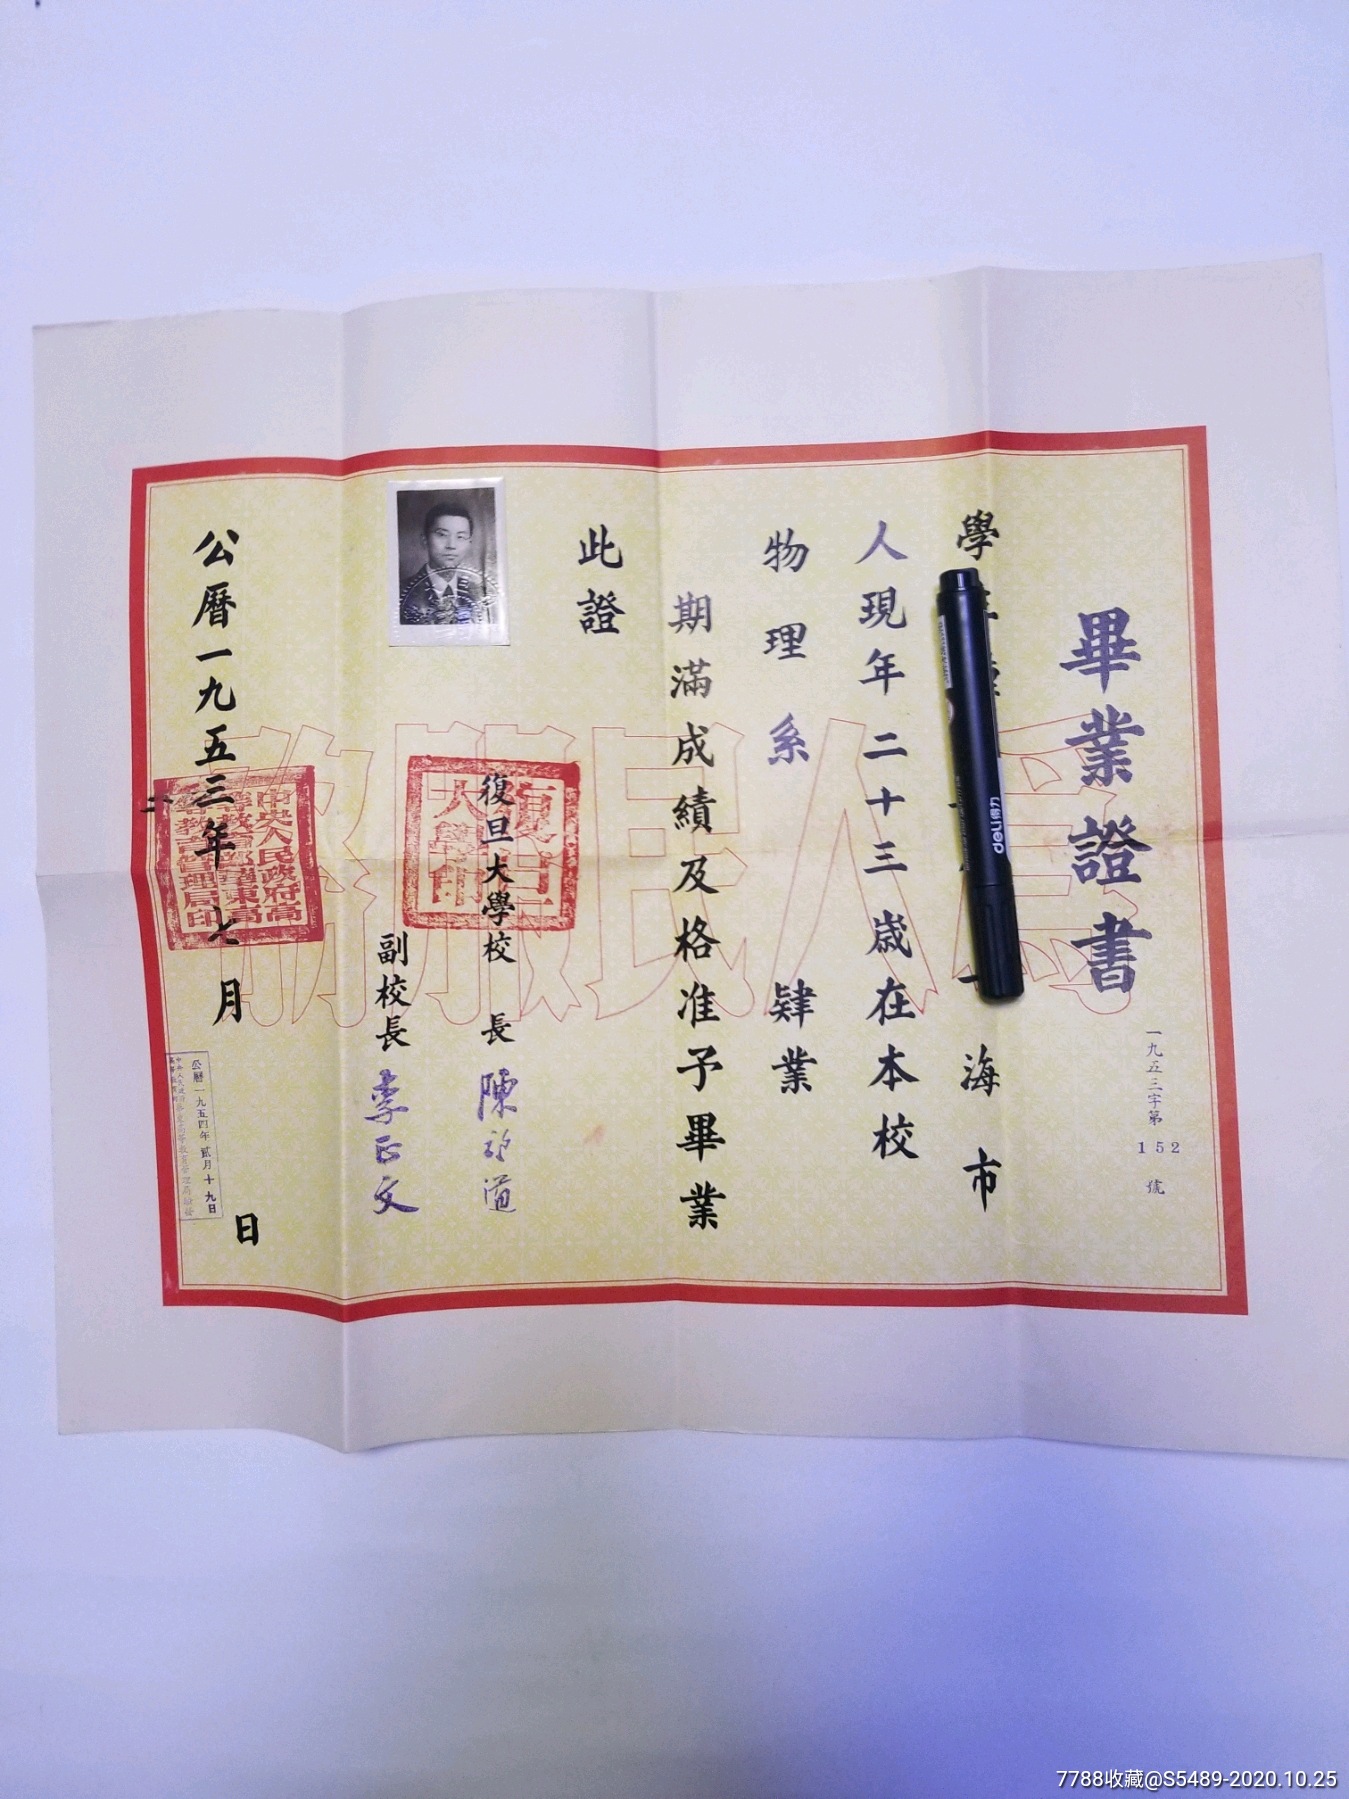 畢業證書
一九五三字第
152
號
學
海市
人現年二十三歲在本校
物理系 肄業
期滿成績及格准予畢業
此證
復旦大學校 長 陳望道
副校長 李正文
公曆一九五三年七月 日
復旦大學印
中央人民政府高等教育部華東高等教育管理局印
公曆一九五四年貳月十九日
為人民服務
deli得力
7788收藏@S5489-2020.10.25